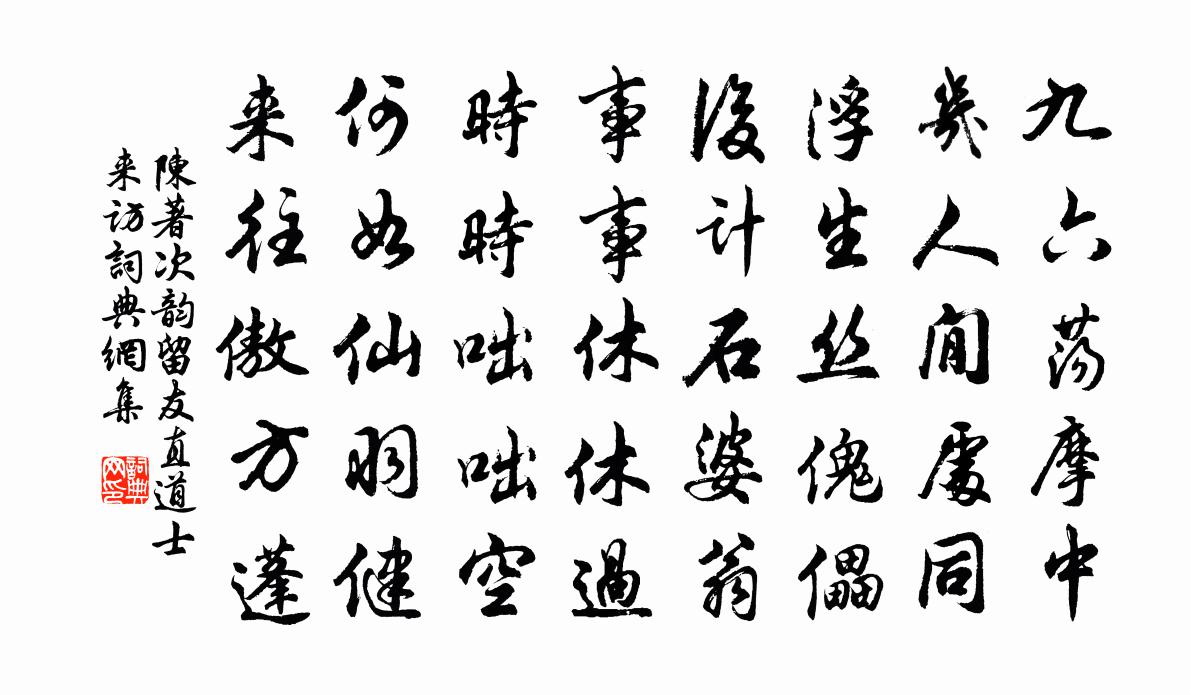 九六荡摩中
幾人閒處同
浮生丝傀儡
後计石婆翁
事事休休過
時時咄咄空
何如仙羽健
来往傲方蓬
陳著次韵留友直道士
来訪詞典網集
詞典
网印